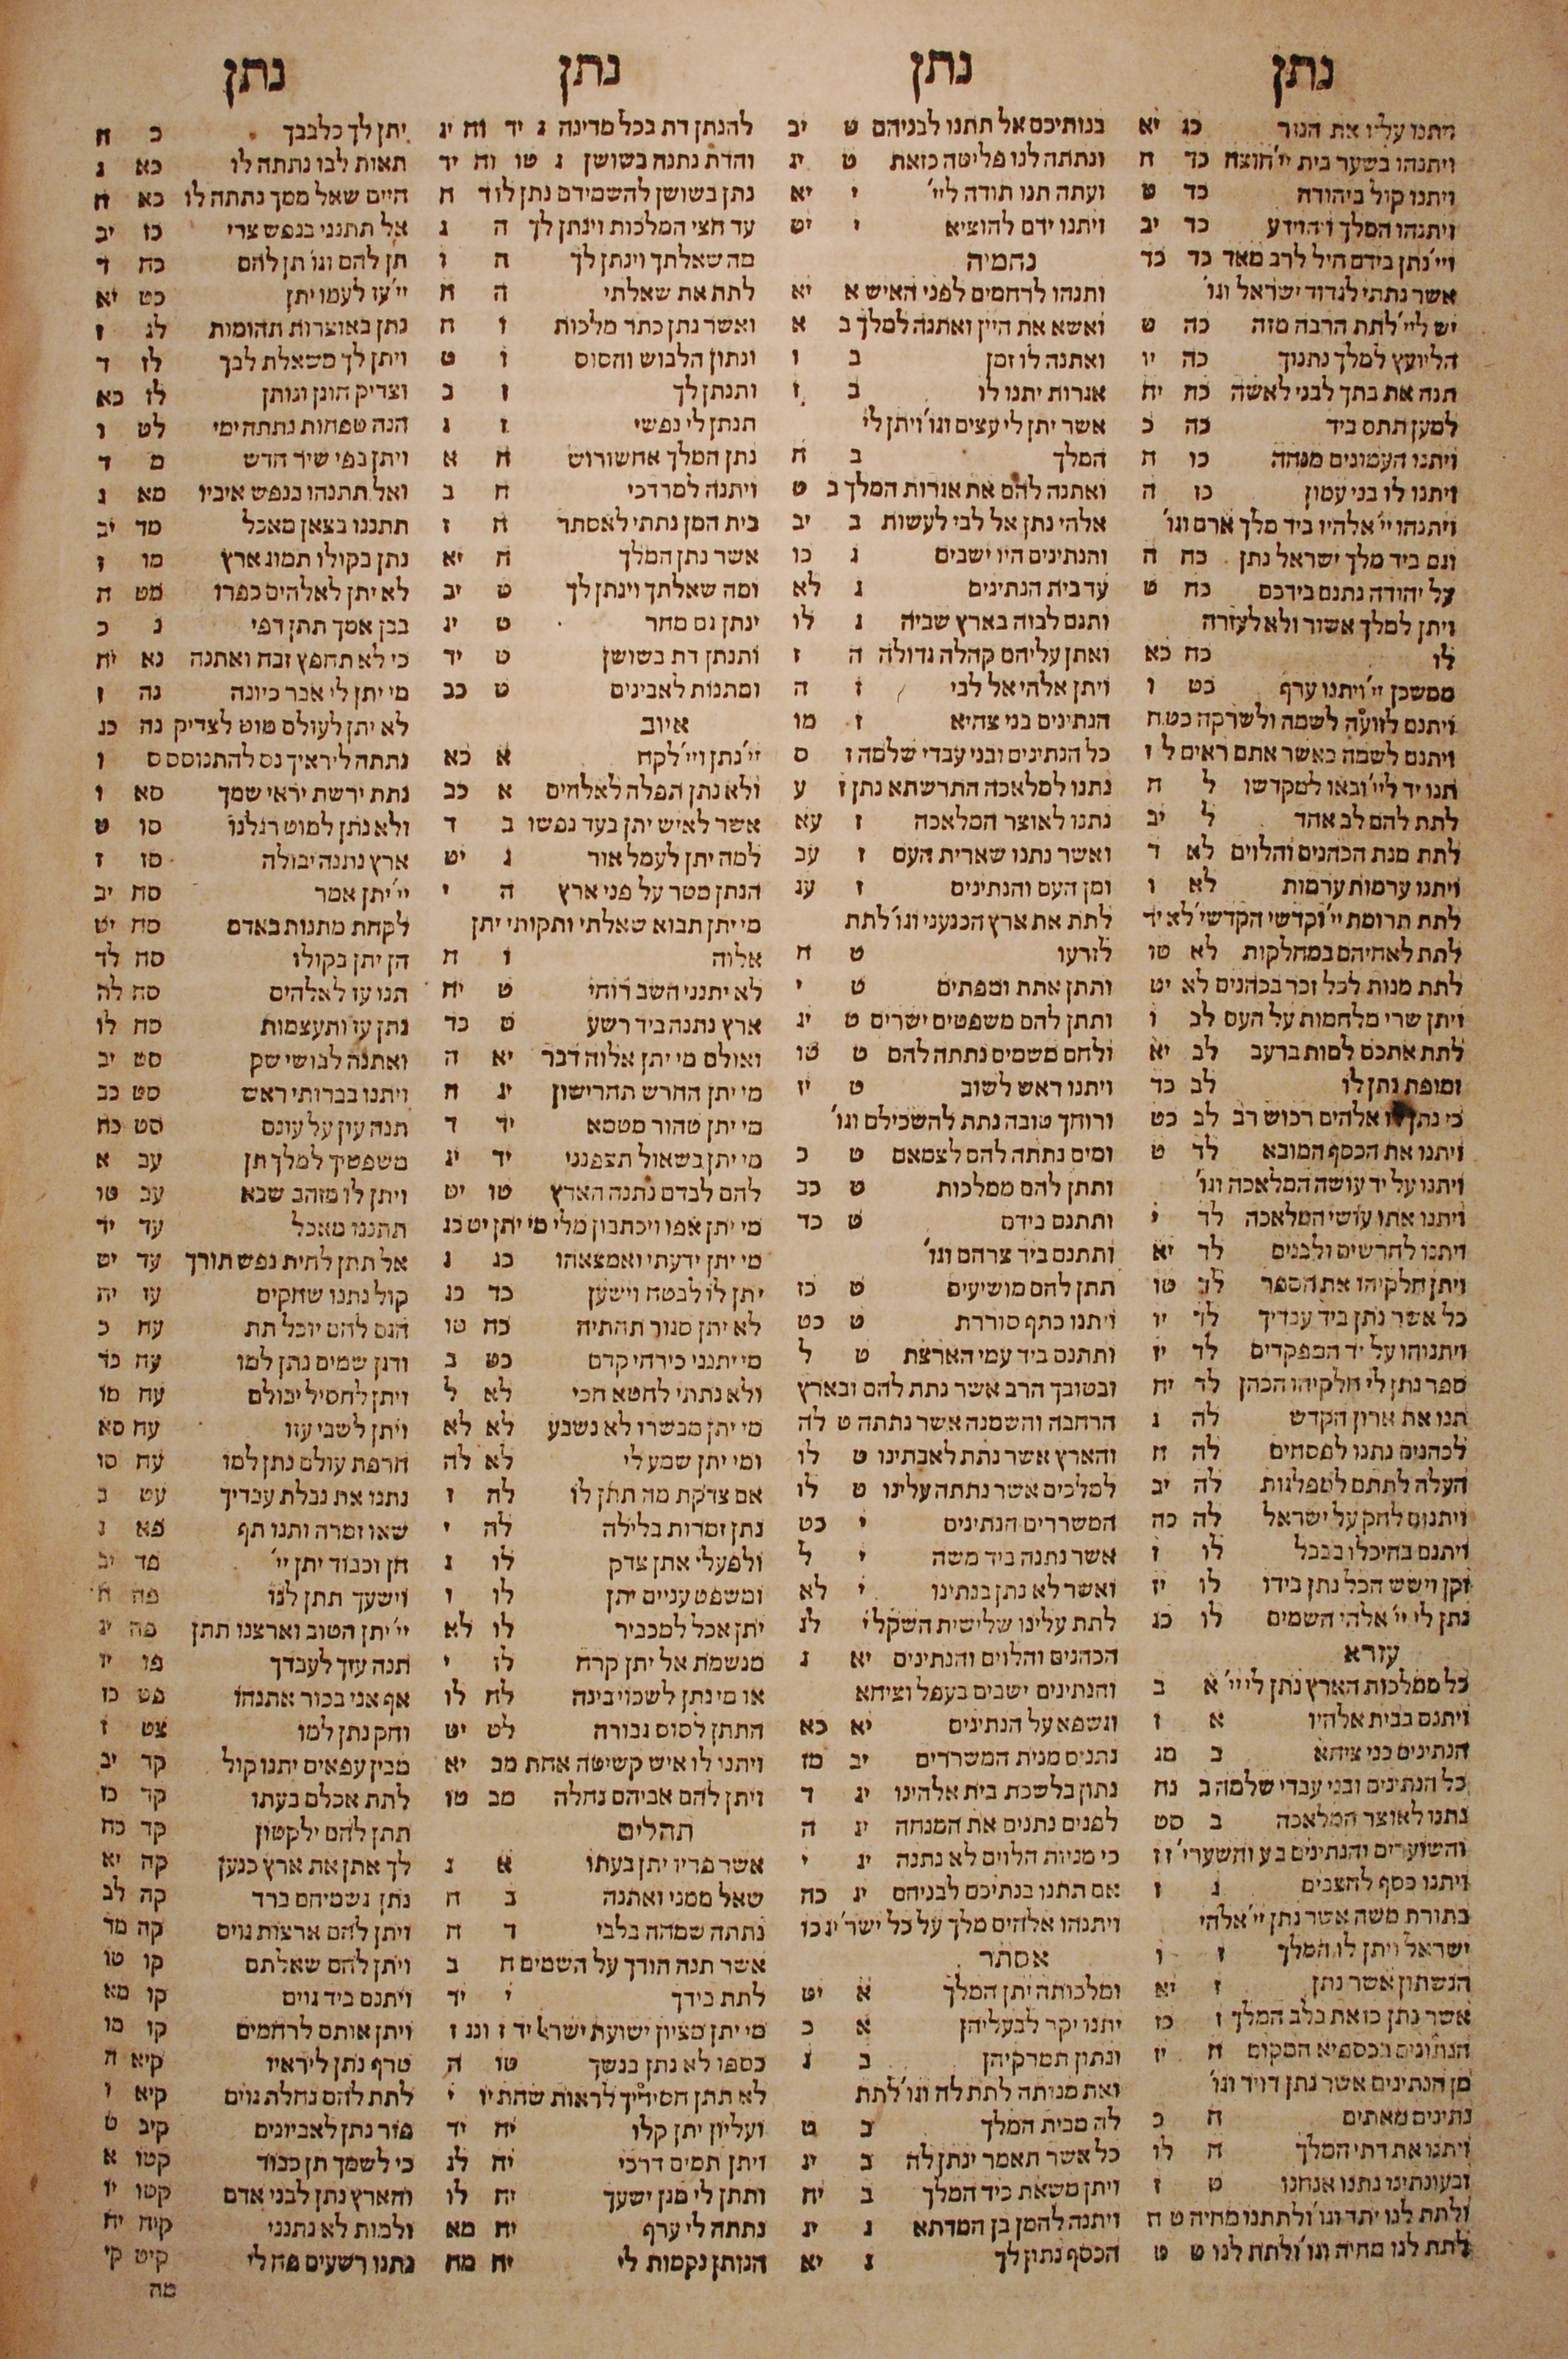 נתן
ויתנו עליו את הנזר כג יא
ויתנהו בשער בית יי׳ חוצה כד ח
ויתנו קול ביהודה כד ט
ויתנהו המלך ויהוידע כד יב
ויי׳ נתן בידם חיל לרב מאד כד כד
אשר נתתי לגדוד ישראל וגו׳
יש ליי׳ לתת הרבה מזה כה ט
הליועץ למלך נתנוך כה יו
תנה את בתך לבני לאשה כה יח
למען תתם ביד כה כ
ויתנו העמונים מנחה כו ח
ויתנו לו בני עמון כז ה
ויתנהו יי׳ אלהיו ביד מלך ארם וגו׳
וגם ביד מלך ישראל נתן כח ה
על יהודה נתנם בידכם כח ט
ויתן למלך אשור ולא לעזרה
לו כח כא
ממשכן יי׳ ויתנו ערף כט ו
ויתנם לזועה לשמה ולשרקה כט ח
ויתנם לשמה כאשר אתם ראים ל ז
תנו יד ליי׳ ובאו למקדשו ל ח
לתת להם לב אחד ל יב
לתת מנת הכהנים והלוים לא ד
ויתנו ערמות ערמות לא ו
לתת תרומת יי׳ וקדשי הקדשי׳ לא יד
לתת לאחיהם במחלקות לא טו
לתת מנות לכל זכר בכהנים לא יט
ויתן שרי מלחמות על העם לב ו
לתת אתכם למות ברעב לב יא
ומופת נתן לו לב כד
כי נתן לו אלהים רכוש רב לב כט
ויתנו את הכסף המובא לד ט
ויתנו על יד עושה המלאכה וגו׳
ויתנו אתו עושי המלאכה לד י
ויתנו לחרשים ולבנים לד יא
ויתן חלקיהו את הספר לד טו
כל אשר נתן ביד עבדיך לד יו
ויתניהו על יד המפקדים לד יז
ספר נתן לי חלקיהו הכהן לד יח
תנו את ארון הקדש לה ג
לכהנים נתנו לפסחים לה ח
העלה לתתם למפלגות לה יב
ויתנום לחק על ישראל לה כה
ויתנם בהיכלו בבבל לו ז
זקן וישש הכל נתן בידו לו יז
נתן לי יי׳ אלהי השמים לו כג
עזרא
כל ממלכות הארץ נתן לי יי׳ א ב
ויתנם בבית אלהיו א ז
הנתינים בני ציחא ב מג
כל הנתינים ובני עבדי שלמה ב נח
נתנו לאוצר המלאכה ב סט
והשוערים והנתינים ב ע והשערי׳ ז ז
ויתנו כסף לחצבים ג ז
בתורת משה אשר נתן יי׳ אלהי
ישראל ויתן לו המלך ז ו
הנשתון אשר נתן ז יא
אשר נתן כזאת בלב המלך ז כז
הנתונים בכספיא המקום ח יז
מן הנתינים אשר נתן דויד וגו׳
נתינים מאתים ח כ
ויתנו את דתי המלך ח לו
ובעונתינו נתנו אנחנו ט ז
ולתת לנו יתד וגו׳ ולתתנו מחיה ט ח
לתת לנו מחיה וגו׳ ולתת לנו ט ט
נתן
בנותיכם אל תתנו לבניהם ט יב
ונתתה לנו פליטה כזאת ט יג
ועתה תנו תודה ליי׳ י יא
ויתנו ידם להוציא י יט
נחמיה
ותנהו לרחמים לפני האיש א יא
ואשא את היין ואתנה למלך ב א
ואתנה לו זמן ב ו
אגרות יתנו לו ב ז
אשר יתן לי עצים וגו׳ ויתן לי
המלך ב ח
ואתנה להם את אגרות המלך ב ט
אלהי נתן אל לבי לעשות ב יב
והנתינים היו ישבים ג כו
עד בית הנתינים ג לא
ותנם לבזה בארץ שביה ג לו
ואתן עליהם קהלה גדולה ה ז
ויתן אלהי אל לבי ז ה
הנתינים בני צחיא ז מו
כל הנתינים ובני עבדי שלמה ז ס
נתנו למלאכה התרשתא נתן ז ע
נתנו לאוצר המלאכה ז עא
ואשר נתנו שארית העם ז עב
ומן העם והנתינים ז עג
לתת את ארץ הכנעני וגו׳ לתת
לזרעו ט ח
ותתן אתת ומפתים ט י
ותתן להם משפטים ישרים ט יג
ולחם משמים נתתה להם ט טו
ויתנו ראש לשוב ט יז
ורוחך טובה נתת להשכילם וגו׳
ומים נתתה להם לצמאם ט כ
ותתן להם ממלכות ט כב
ותתנם בידם ט כד
ותתנם ביד צרהם וגו׳
תתן להם מושיעים ט כז
ויתנו כתף סוררת ט כט
ותתנם ביד עמי הארצת ט ל
ובטובך הרב אשר נתת להם ובארץ
הרחבה והשמנה אשר נתתה ט לה
והארץ אשר נתת לאבתינו ט לו
למלכים אשר נתתה עלינו ט לז
המשררים הנתינים י כט
אשר נתנה ביד משה י ל
ואשר לא נתן בנתינו י לא
לתת עלינו שלישית השקל י לג
הכהנים והלוים והנתינים יא ג
והנתינים ישבים בעפל וציחא
וגשפא על הנתינים יא כא
נתנים מנית המשררים יב מז
נתון בלשכת בית אלהינו יג ד
לפנים נתנים את המנחה יג ה
כי מניות הלוים לא נתנה יג י
אם תתנו בנתיכם לבניהם יג כה
ויתנהו אלהים מלך על כל ישר׳ יג כו
אסתר
ומלכותה יתן המלך א יט
יתנו יקר לבעליהן א כ
ונתון תמרקיהן ב ג
ואת מנותה לתת לה וגו׳ לתת
לה מבית המלך ב ט
כל אשר תאמר ינתן לה ב יג
ויתן משאת כיד המלך ב יח
ויתנה להמן בן המדתא ג יג
הכסף נתון לך ג יא
נתן
להנתן דת בכל מדינה ג יד וח יג
והדת נתנה בשושן ג טו וח יד
נתן בשושן להשמידם נתן לו ד ח
עד חצי המלכות וינתן לך ה ג
מה שאלתך וינתן לך ה ו
לתת את שאלתי ה ח
ואשר נתן כתר מלכות ו ח
ונתון הלבוש והסוס ו ט
ותנתן לך ז ב
תנתן לי נפשי ז ג
נתן המלך אחשורוש ח א
ויתנה למרדכי ח ב
בית המן נתתי לאסתר ח ז
אשר נתן המלך ח יא
ומה שאלתך וינתן לך ט יב
ינתן גם מחר ט יג
ותנתן דת בשושן ט יד
ומתנות לאבינים ט כב
איוב
יי׳ נתן ויי׳ לקח א כא
ולא נתן תפלה לאלהים א כב
אשר לאיש יתן בעד נפשו ב ד
למה יתן לעמל אור ג יט
הנתן מטר על פני ארץ ה י
מי יתן תבוא שאלתי ותקותי יתן
אלוה ו ח
לא יתנני השב רוחי ט יח
ארץ נתנה ביד רשע ט כד
ואולם מי יתן אלוה דבר יא ה
מי יתן החרש תחרישון יג ח
מי יתן טהור מטמא יד ד
מי יתן בשאול תצפנני יד יג
להם לבדם נתנה הארץ טו יט
מי יתן אפו ויכתבון מלי מי יתן יט כג
מי יתן ידעתי ואמצאהו כג ג
יתן לו לבטח וישען כד כג
לא יתן סגור תחתיה כח טו
מי יתנני כירחי קדם כט ב
ולא נתתי לחטא חכי לא ל
מי יתן מבשרו לא נשבע לא לא
ומי יתן שמע לי לא לה
אם צדקת מה תתן לו לה ז
נתן זמרות בלילה לה י
ולפעלי אתן צדק לו ג
ומשפט עניים יתן לו ו
יתן אכל למכביר לו לא
מנשמת אל יתן קרח לז י
או מי נתן לשכוי בינה לח לו
התתן לסוס גבורה לט יט
ויתנו לו איש קשיטה אחת מב יא
ויתן להם אביהם נחלה מב טו
תהלים
אשר פריו יתן בעתו א ג
שאל ממני ואתנה ב ח
נתתה שמחה בלבי ד ח
אשר תנה הודך על השמים ח ב
לתת בידך י יד
מי יתן מציון ישועת ישרא׳ יד ז ונג ז
כספו לא נתן בנשך טו ה
לא תתן חסידיך לראות שחת יו י
ועליון יתן קלו יח יד
ויתן תמים דרכי יח לג
ותתן לי מגן ישעך יח לו
נתתה לי ערף יח מא
הנותן נקמות לי יח מח
נתן
יתן לך כלבבך כ ה
תאות לבו נתתה לו כא ג
חיים שאל ממך נתתה לו כא ה
אל תתנני בנפש צרי כז יב
תן להם וגו׳ תן להם כח ד
יי׳ עז לעמו יתן כט יא
נתן באוצרות תהומות לג ז
ויתן לך משאלת לבך לז ד
וצדיק חונן ונותן לז כא
הנה טפחות נתתה ימי לט ו
ויתן בפי שיר חדש מ ד
ואל תתנהו בנפש איביו מא ג
תתננו בצאן מאכל מד יב
נתן בקולו תמוג ארץ מו ז
לא יתן לאלהים כפרו מט ח
בבן אמך תתן דפי נ כ
כי לא תחפץ זבח ואתנה נא יח
מי יתן לי אבר כיונה נה ז
לא יתן לעולם מוט לצדיק נה כג
נתתה ליראיך נס להתנוסס ס ו
נתת ירשת יראי שמך סא ו
ולא נתן למוט רגלנו סו ט
ארץ נתנה יבולה סז ז
יי׳ יתן אמר סח יב
לקחת מתנות באדם סח יט
הן יתן בקולו סח לד
תנו עז לאלהים סח לה
נתן עז ותעצמות סח לו
ואתנה לבושי שק סט יב
ויתנו בברותי ראש סט כב
תנה עון על עונם סט כח
משפטיך למלך תן עב א
ויתן לו מזהב שבא עב טו
תתננו מאכל עד יד
אל תתן לחית נפש תורך עד יט
קול נתנו שחקים עז יח
הגם לחם יוכל תת עח כ
ודגן שמים נתן למו עח כד
ויתן לחסיל יבולם עח מו
ויתן לשבי עזו עח סא
חרפת עולם נתן למו עח סו
נתנו את נבלת עבדיך עט ב
שאו זמרה ותנו תף פא ג
חן וכבוד יתן יי׳ פד יב
וישעך תתן לנו פה ח
יי׳ יתן הטוב וארצנו תתן פה יג
תנה עזך לעבדך פו יו
אף אני בכור אתנהו פט כז
וחק נתן למו צט ז
מבין עפאים יתנו קול קד יב
לתת אכלם בעתו קד כז
תתן להם ילקטון קד כח
לך אתן את ארץ כנען קה יא
נתן גשמיהם ברד קה לב
ויתן להם ארצות גוים קה מד
ויתן להם שאלתם קו טו
ויתנם ביד גוים קו מא
ויתן אותם לרחמים קו מו
טרף נתן ליראיו קיא ה
לתת להם נחלת גוים קיא ו
פזר נתן לאביונים קיב ט
כי לשמך תן כבוד קטו א
והארץ נתן לבני אדם קטו יו
ולמות לא נתנני קיח יח
נתנו רשעים פח לי קיט קי
מה